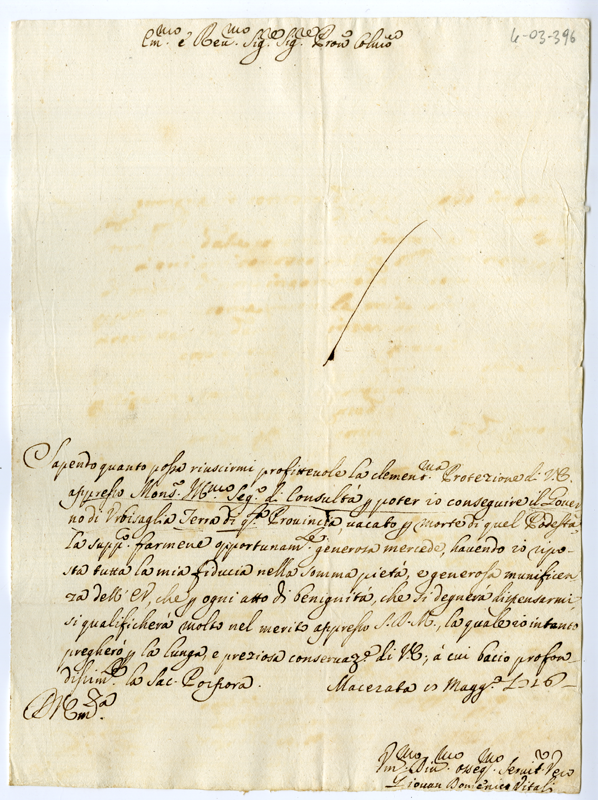 4-03-396
Em.mo e Reu.mo Sig.re Sig.re Pron.e Colmo
Sapendo quanto possa riuscirmi profitteuole la clement.ma Protezione di V.E.
appresso Mons.r Ill.mo Seg.o di Consulta p poter io conseguire il Gouer-
no di Vrbisaglia Terra di q.sta Prouincia, uacato p morte di quel Podestà
La supp.co farmene opportunam.te generosa mercede, hauendo io ripo-
sta tutta la mia fiducia nella somma pietà, e generosa munificen
za dell'EV, che p ogni atto di benignità, che si degnerà dispensarmi
si qualificherà molto nel merito appresso S.D.M., la quale io intanto
pregherò p la lunga, e preziosa conseruaz.e di V.E.; à cui bacio profon-
dissim.te la Sac. Porpora. Macerata Magg.o 1716
Vm.mo Diu.mo osseq.mo Seruit.e Vero
Giouan Domenico Vitali